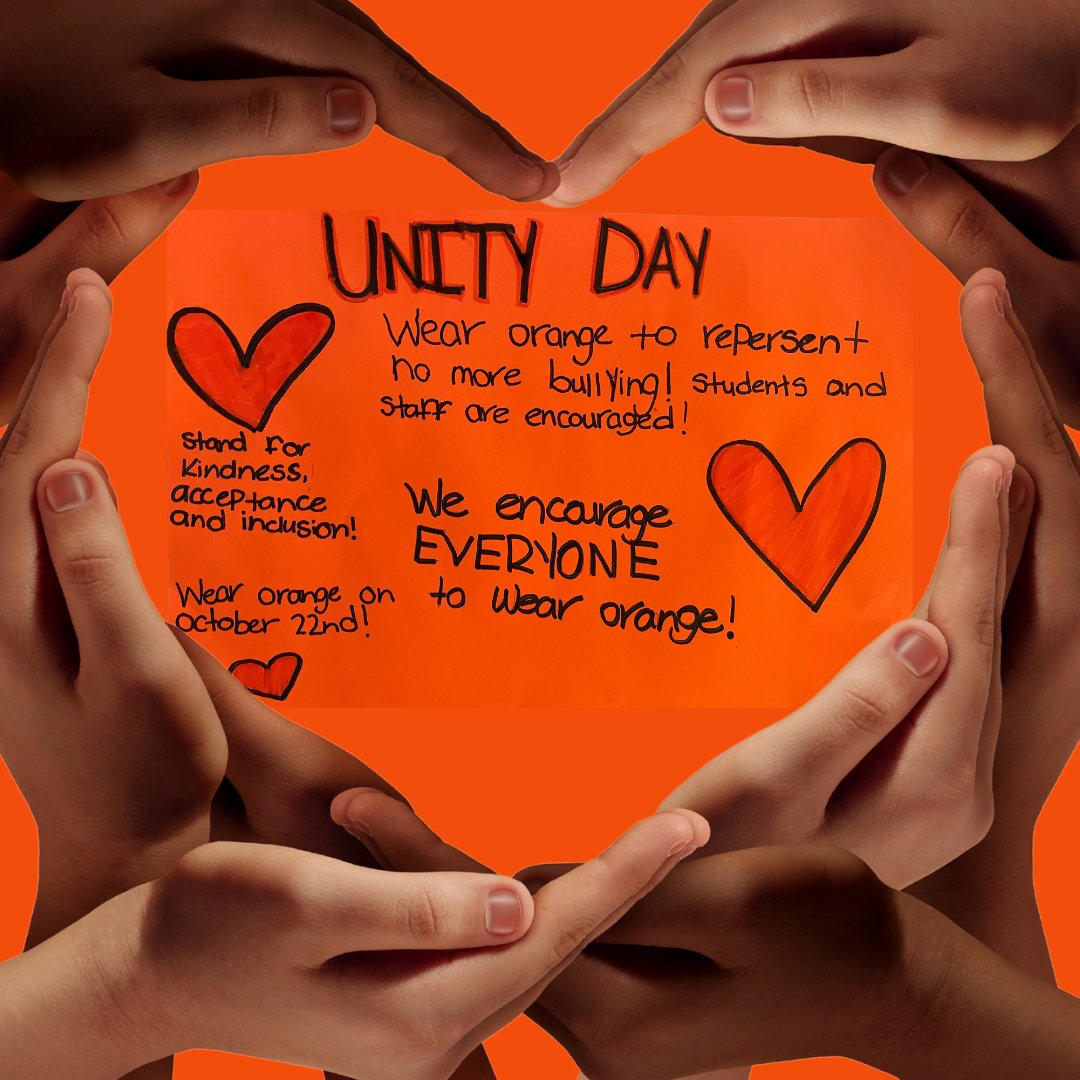 UNITY DAY
Wear orange to repersent
no more bullying! Students and
staff are encouraged!
Stand for
Kindness,
acceptance
and inclusion!
We encourage
EVERYONE
to wear orange!
Wear orange on
October 22nd!